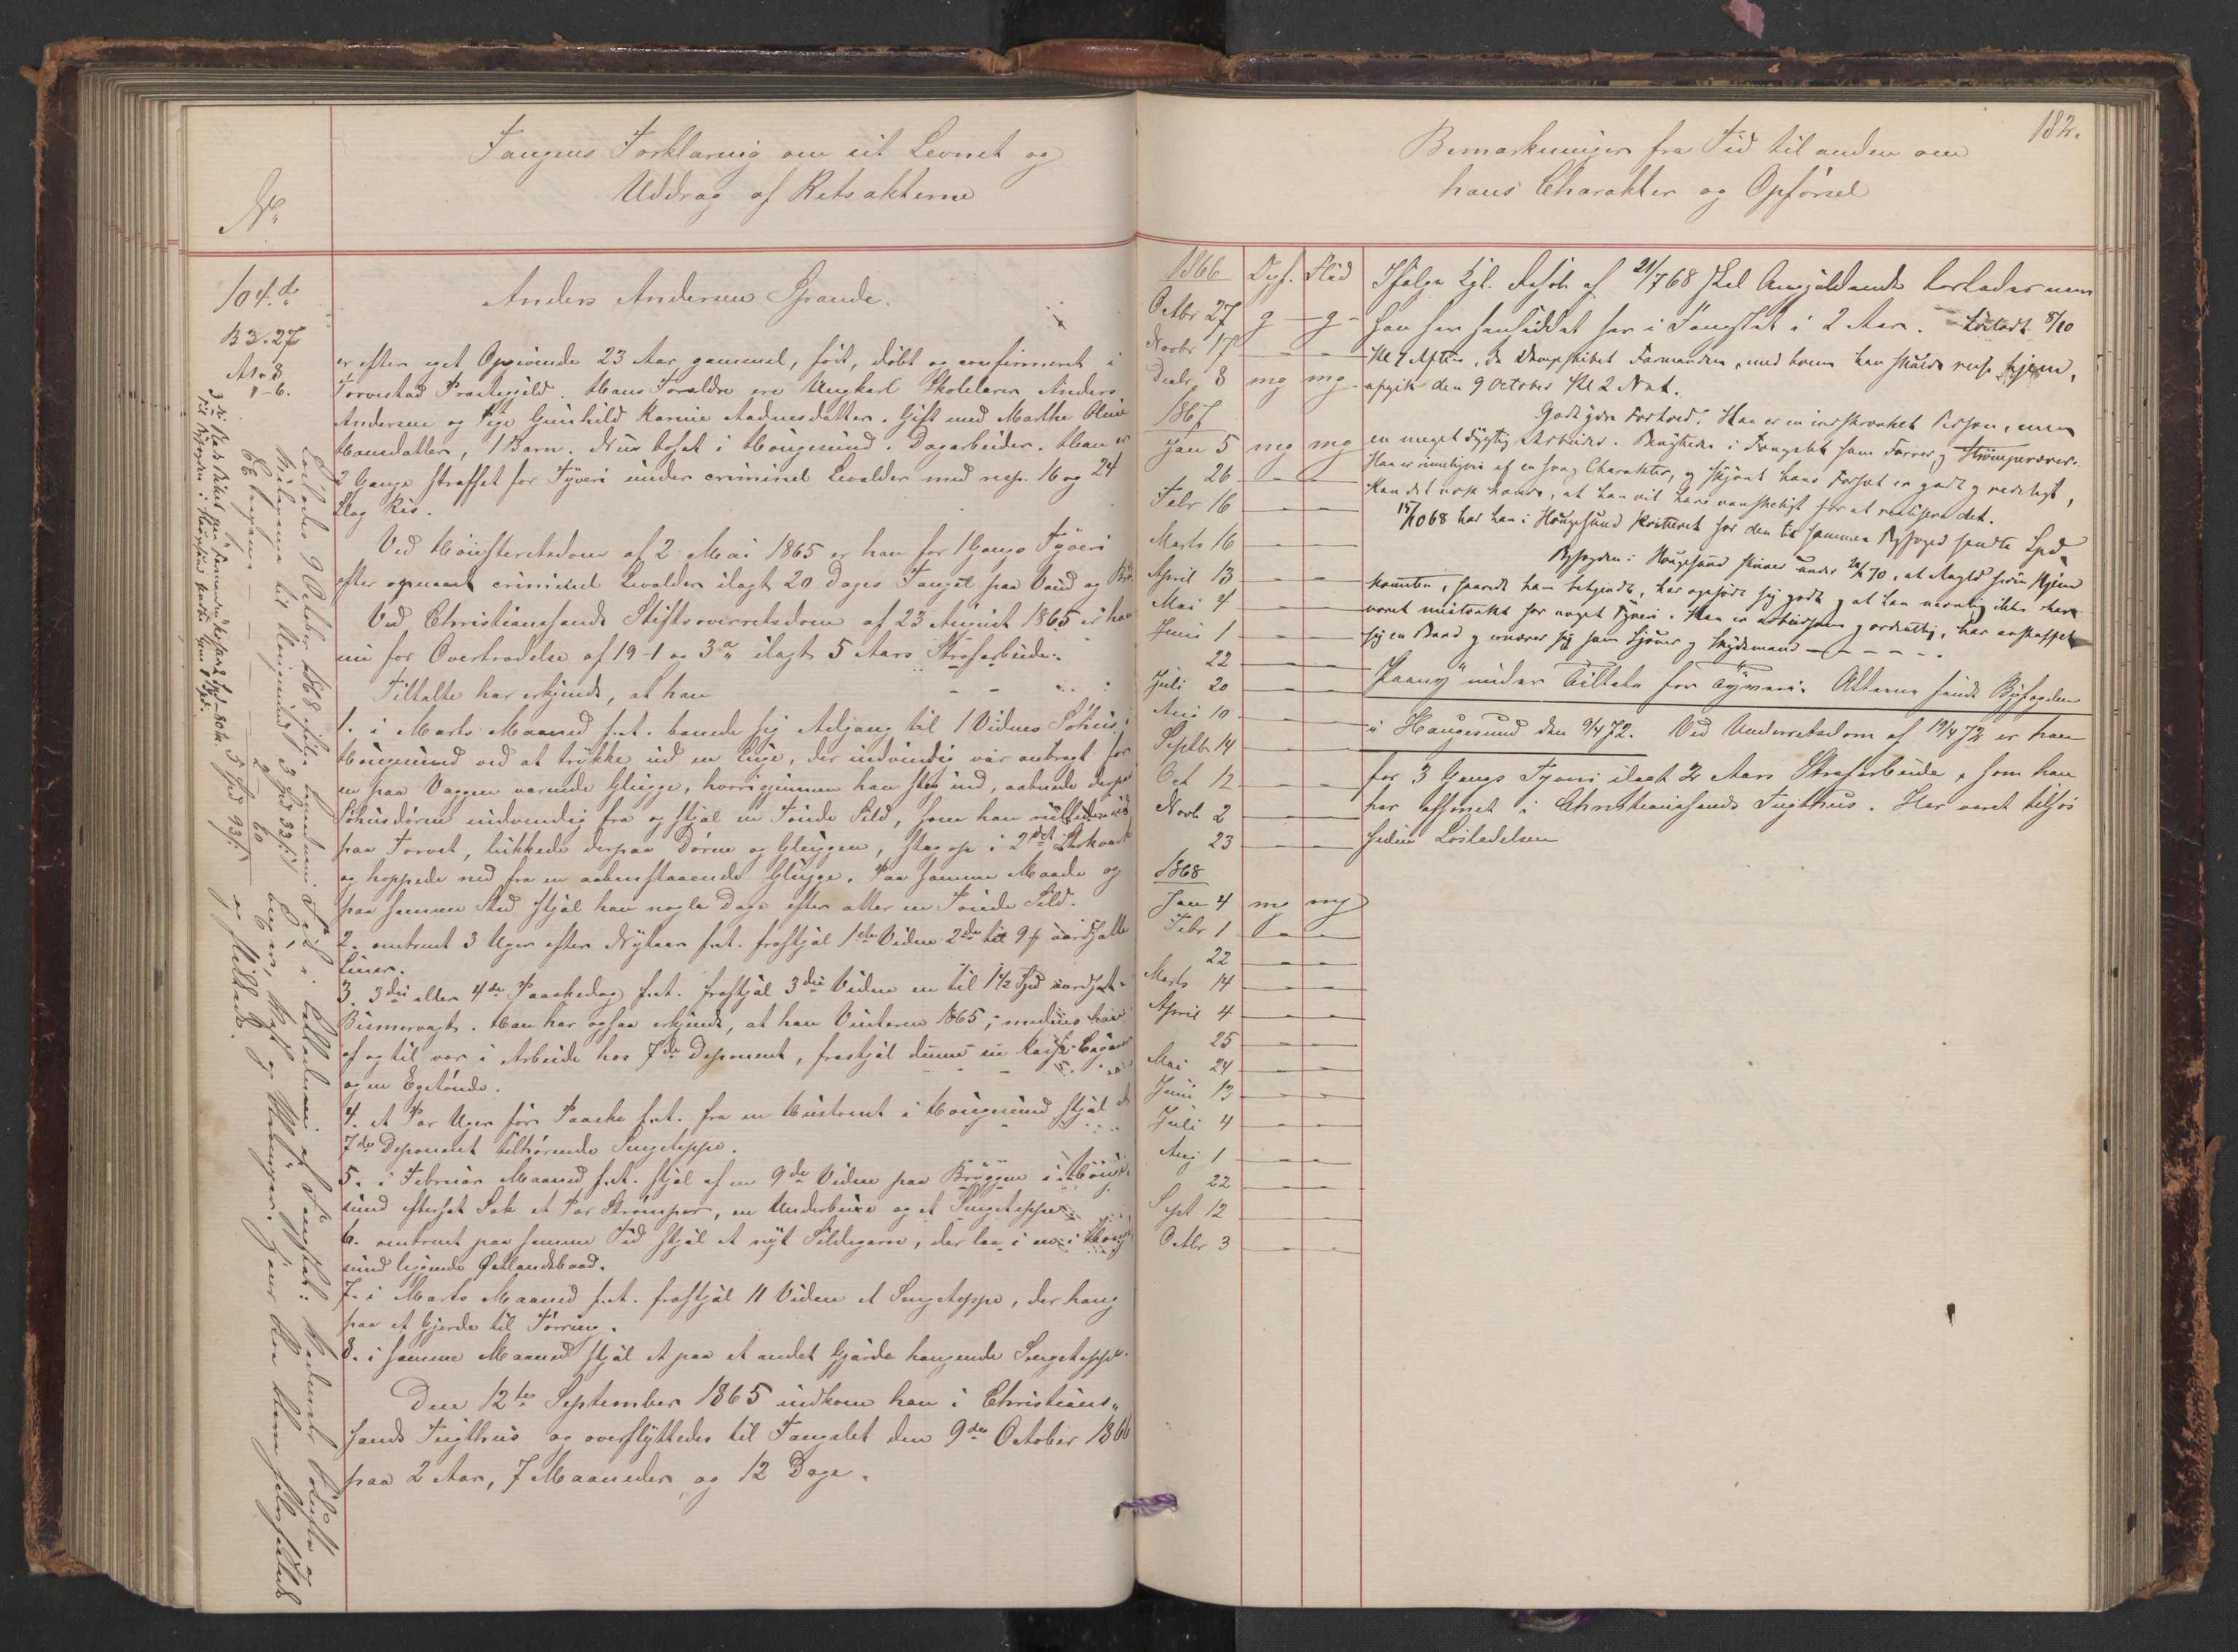 Fangens Forklaring om sit Levnet og
Uddrag af Retsakterne
No
104.d.
B 3. 27
A 10. 8
1-6.
Anders Andersen Spande.
er efter eget Opgivende 23 Aar gammel, født, døbt og confirmeret i
Torvestad Præstegjeld. Hans Forældre ere Ungkarl Skolelærer Anders
Andersen og Pige Gunhild Karine Aadnesdatter. Gift med Marthe Oline
Hansdatter, 1 Barn. Nu bosat i Hougesund. Dagarbeider. Han er
2 Gange straffet for Tyveri under criminel Lavalder med resp. 16 og 24
Slag Ris.
Ved Höiesteretsdom af 2 Mai 1865 er han for 1 Gangs Tyveri
efter opnaaet criminel Lavalder ilagt 20 Dages Fængsel paa Vand og Brö
Ved Christianssands Stiftsoverretsdom af 23 August 1865 er han
nu for Overtrædelse af 19-1 og 3 a ilagt 5 Aars Strafarbeide.
Tiltalte har erkjendt, at han
1. i Marts Maaned f.A. banede sig Adgang til 1 Vidnes Söhus i
Hougesund ved at trykke ud en Luge, der indvendig var anbragt for
en paa Væggen værende Glugge, hvorigjennem han steg ind, aabnede derpaa
Söhusdören indvendig fra og stjal en Tønde Sild, som han rullede ud
paa Torvet, lukkede derpaa Dören og Gluggen, steg op i 2det Stokværk
og hoppede ned fra en aabenstaaende Glugge. Paa samme Maade og
paa samme Sted stjal han nogle Dage efter atter en Tønde Sild.
2. omtrent 3 Uger efter Nytaar f.A. frastjal 1ste Vidne 2de til 9 ƒ værdsatte
Liner.
3. 3die eller 4de Paaskedag f.A. frastjal 3die Vidne en til 1½ Spd værdsat
Bismervægt. Han har ogsaa erkjendt, at han Vinteren 1865, medens han
af og til var i Arbeide hos 7de Deponent, frastjal denne en Kasse Cigarer
og en Egetönde.
4. et Par Uger för Paaske f.A. fra en Hustomt i Hougesund stjal et
7de Deponent tilhørende Sengeteppe.
5. i Februar Maaned f.A. stjal af en 9de Vidne paa Bryggen i Houge-
sund eftersat Sæk et Par Strömper, en Underbuxe og et Sengeteppe
6. omtrent paa samme Tid stjal et nyt Sildegarn, der laa i en i Houge-
sund liggende Østlandsbaad.
7. i Marts Maaned f.A. frastjal 11 Vidne et Sengeteppe, der hang
paa et Gjerde til Törring.
8. i samme Maaned stjal et paa et andet Gjærde hængende Sengeteppe.
Den 12te September 1865 indkom han i Christians-
sands Tugthus og overflyttedes til Fængslet den 9de October 1866
paa 2 Aar, 7 Maaneder og 12 Dage.
Bemærkninger fra Tid til anden om
hans Charakter og Opførsel
182.
1866 Opf. Flid
Octbr 27 g g
Novbr 17 — —
Decbr 8 mg mg
1867
Jan 5 mg mg
26 — —
Febr 16 — —
Marts 16 — —
April 13 — —
Mai 4 — —
Juni 1 — —
22 — —
Juli 20 — —
Aug 10 — —
Septbr 14 — —
Oct 12 — —
Novb 2 — —
23 — —
1868
Jan 4 mg mg
Febr 1 — —
22 — —
Marts 14 — —
April 4 — —
25 — —
Mai 24 — —
Juni 13 — —
Juli 4 — —
Aug 1 — —
22 — —
Sept 12 — —
Octbr 3 — —
Ifølge Kgl. Resol. af 21/7 68 skal Angjældende løslades naar
han har hensiddet her i Fængslet i 2 Aar. Løsladt 8/10
Kl 7 Aften, da Dampskibet Formanden, med hvem han skulde reise hjem,
afgik den 9 October Kl 2 Nat.
Godt ydre Forhold. Han er en indskrænket Person, men
en meget dygtig Arbeider. Benyttedes i Fængslet som Farver og Strömpevæver.
Han er rimeligvis af en svag Charakter, og skjönt hans Forsæt er godt og redeligt,
kan det nok hænde, at han vil have vanskeligt for at realisere det.
15/10 68 har han i Hougesund kvitteret for den til sammes Byfoged sendte Spd.
Byfogden i Hougesund skriver under 20/1 70, at Angld siden Hjem-
komsten, saavidt ham bekjendt, har opført sig godt og at han navnlig ikke har
været mistænkt for noget Tyveri. Han er arbeidsom og ordentlig, har anskaffet
sig en Baad og ernærer sig som Fisker og Skydsmand — — — —
Paany under Tiltale for Tyveri. Akterne sendt Byfogden
i Haugesund den 9/4 72. Ved Underretsdom af 19/4 72 er han
for 3 Gangs Tyveri ilagt 2 Aars Strafarbeide, som han
har afsonet i Christianssands Tugthus. Har været tilsjös
siden Løsladelsen